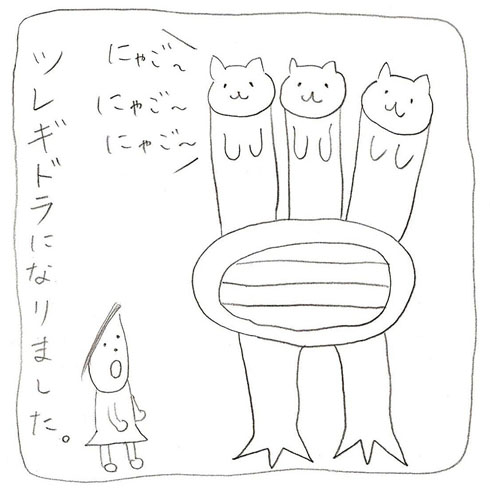 にゃご〜
にゃご〜
にゃご〜
ツレギドラになりました。